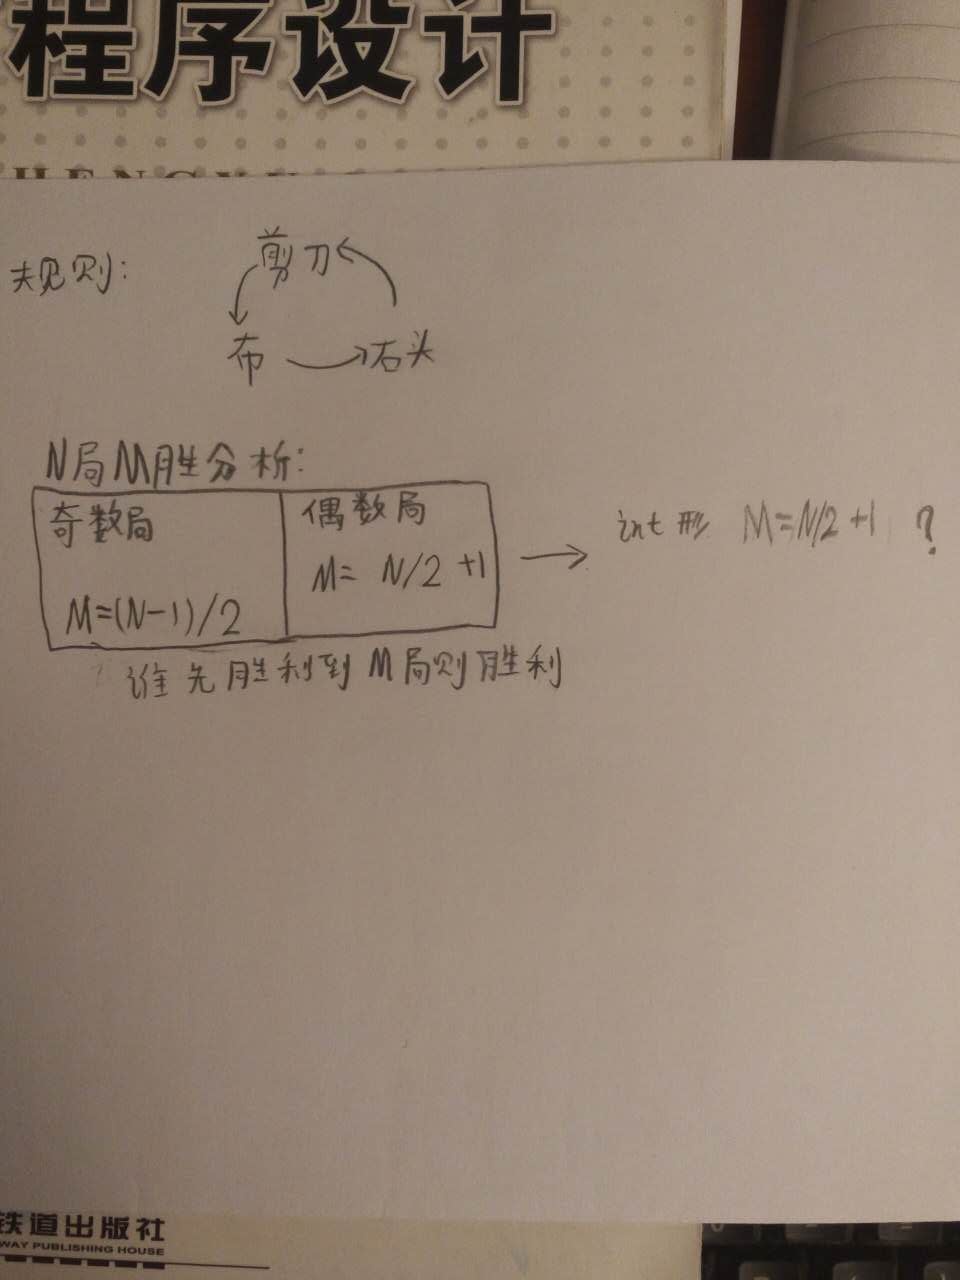 程序设计
规则:
剪刀
布
石头
N局M胜分析:
奇数局
M=(N-1)/2
偶数局
M= N/2 +1
int 形 M=N/2+1 ?
谁先胜利到M局则胜利
铁道出版社
WAY PUBLISHING HOUSE